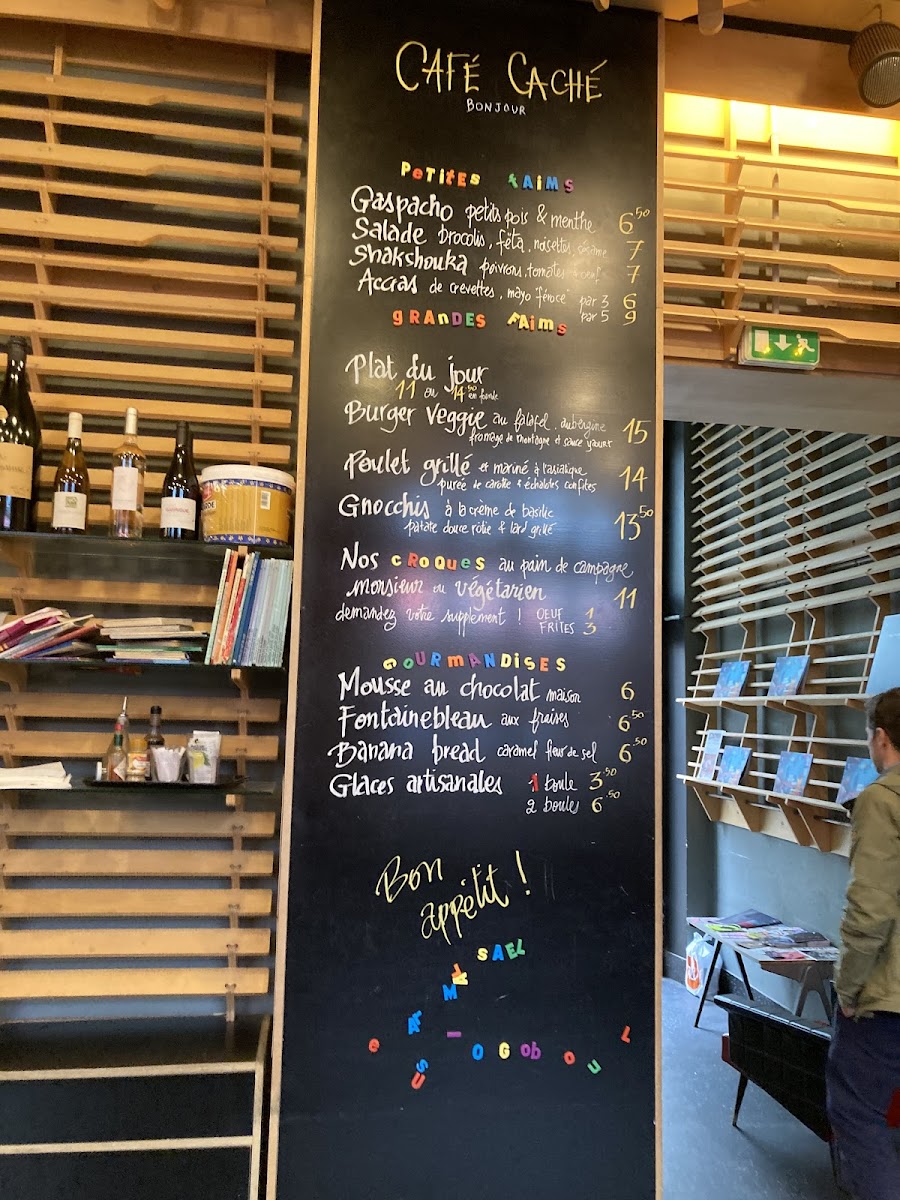 CAFÉ CACHÉ
BONJOUR
PETITES FAIMS
Gaspacho petits pois & menthe 6.50
Salade brocolis, fêta, noisettes, sésame 7
Shakshouka poivrons, tomates 7
Accras de crevettes, mayo "féroce" par 3 6
par 5 9
gRAnDES FAims
Plat du jour
11 ou 14.50 en
Burger Veggie au falafel, aubergine 15
fromage de montagne et sauce yaourt
Poulet grillé et mariné à l'asiatique 14
purée de carotte & échalotes confites
Gnocchis à la crème de basilic 13.50
patate douce rôtie & lard grillé
Nos CROQUES au pain de campagne
monsieur ou végétarien 11
demandez votre supplément ! OEUF 1
FRITES 3
GOURMANDISES
Mousse au chocolat maison 6
Fontainebleau aux fraises 6.50
Banana bread caramel fleur de sel 6.50
Glaces artisanales 1 boule 3.50
2 boules 6.50
Bon
appétit !
SAEL